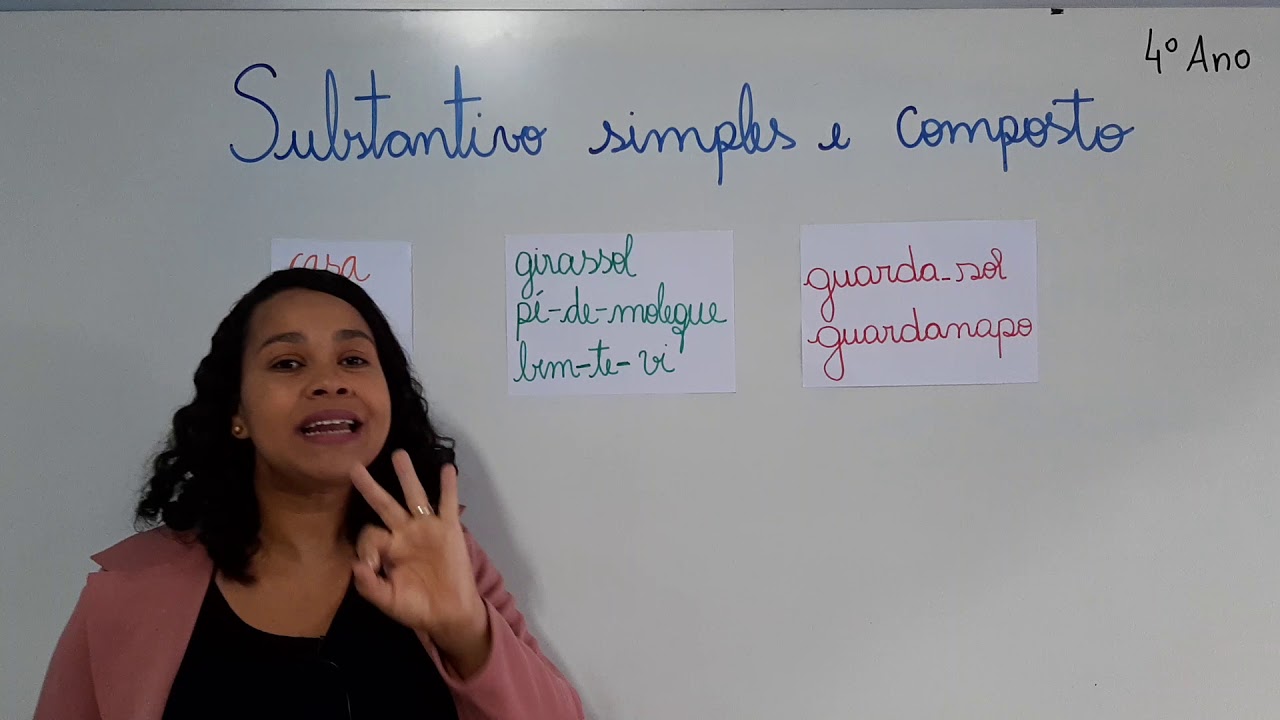 4º Ano
Substantivo simples e composto
casa
girassol
pé-de-moleque
bem-te-vi
guarda-sol
guardanapo